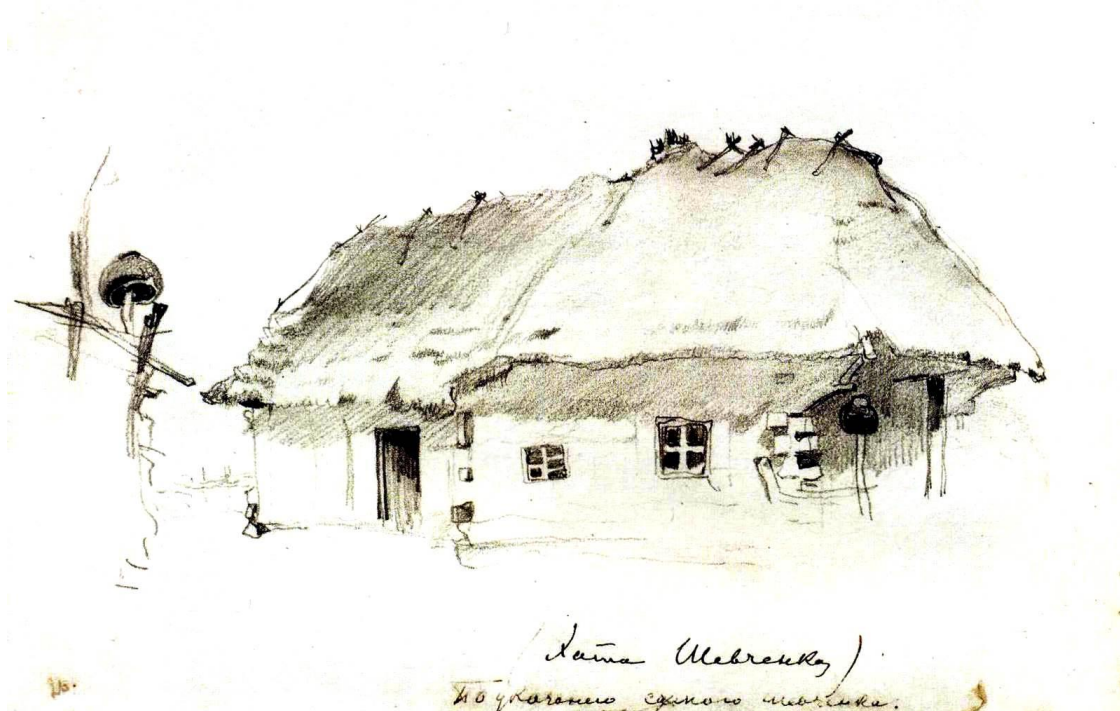 (Хата Шевченка)
По указанию самого Шевченка.